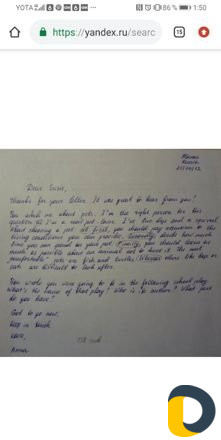 YOTA 86% 1:50
https://yandex.ru/searc 15
Moscow
Russia
Dear Susie,
Thanks for your letter. It was great to hear from you!
You asked me about pets. I'm the right person for this
question as I'm a real pet lover. I've two dogs and a
When choosing a pet at first, you should pay attention to the
living conditions you can provide. Secondly, decide how much
time you can spend on your pet. Finally, you should learn as
much as possible about an animal not to hurt it. The most
pets are fish and turtles, others like dogs or
cats are difficult to look after.
You wrote you were going to be in the following school play.
What's the name of that play? Who is its author? What part
do you have?
Got to go now,
Keep in touch.
Love,